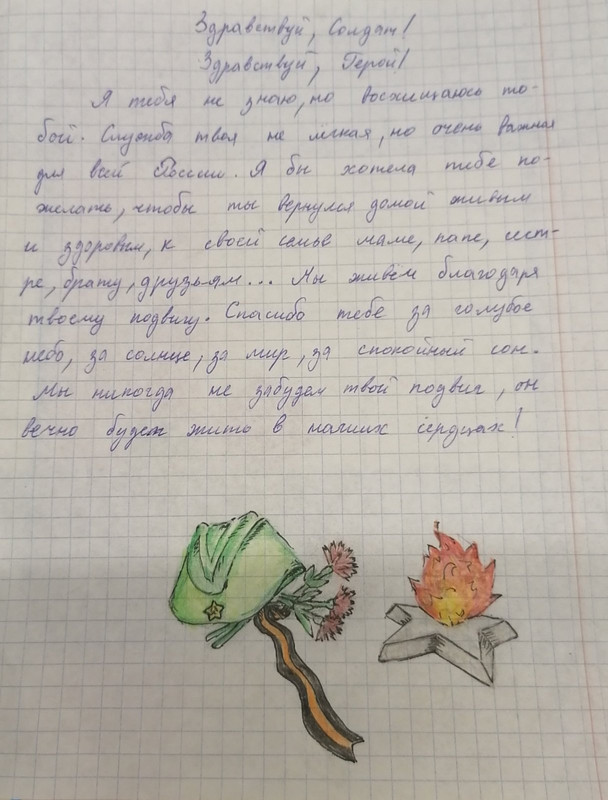 Здравствуй, Солдат!
Здравствуй, Герой!
Я тебя не знаю, но восхищаюсь то-
бой. Служба твоя не легкая, но очень важная
для всей России. Я бы хотела тебе по-
желать, чтобы ты вернулся домой живым
и здоровым, к своей семье маме, папе, сест-
ре, брату, друзьям... Мы живём благодаря
твоему подвигу. Спасибо тебе за голубое
небо, за солнце, за мир, за спокойный сон.
Мы никогда не забудем твой подвиг, он
вечно будет жить в наших сердцах!